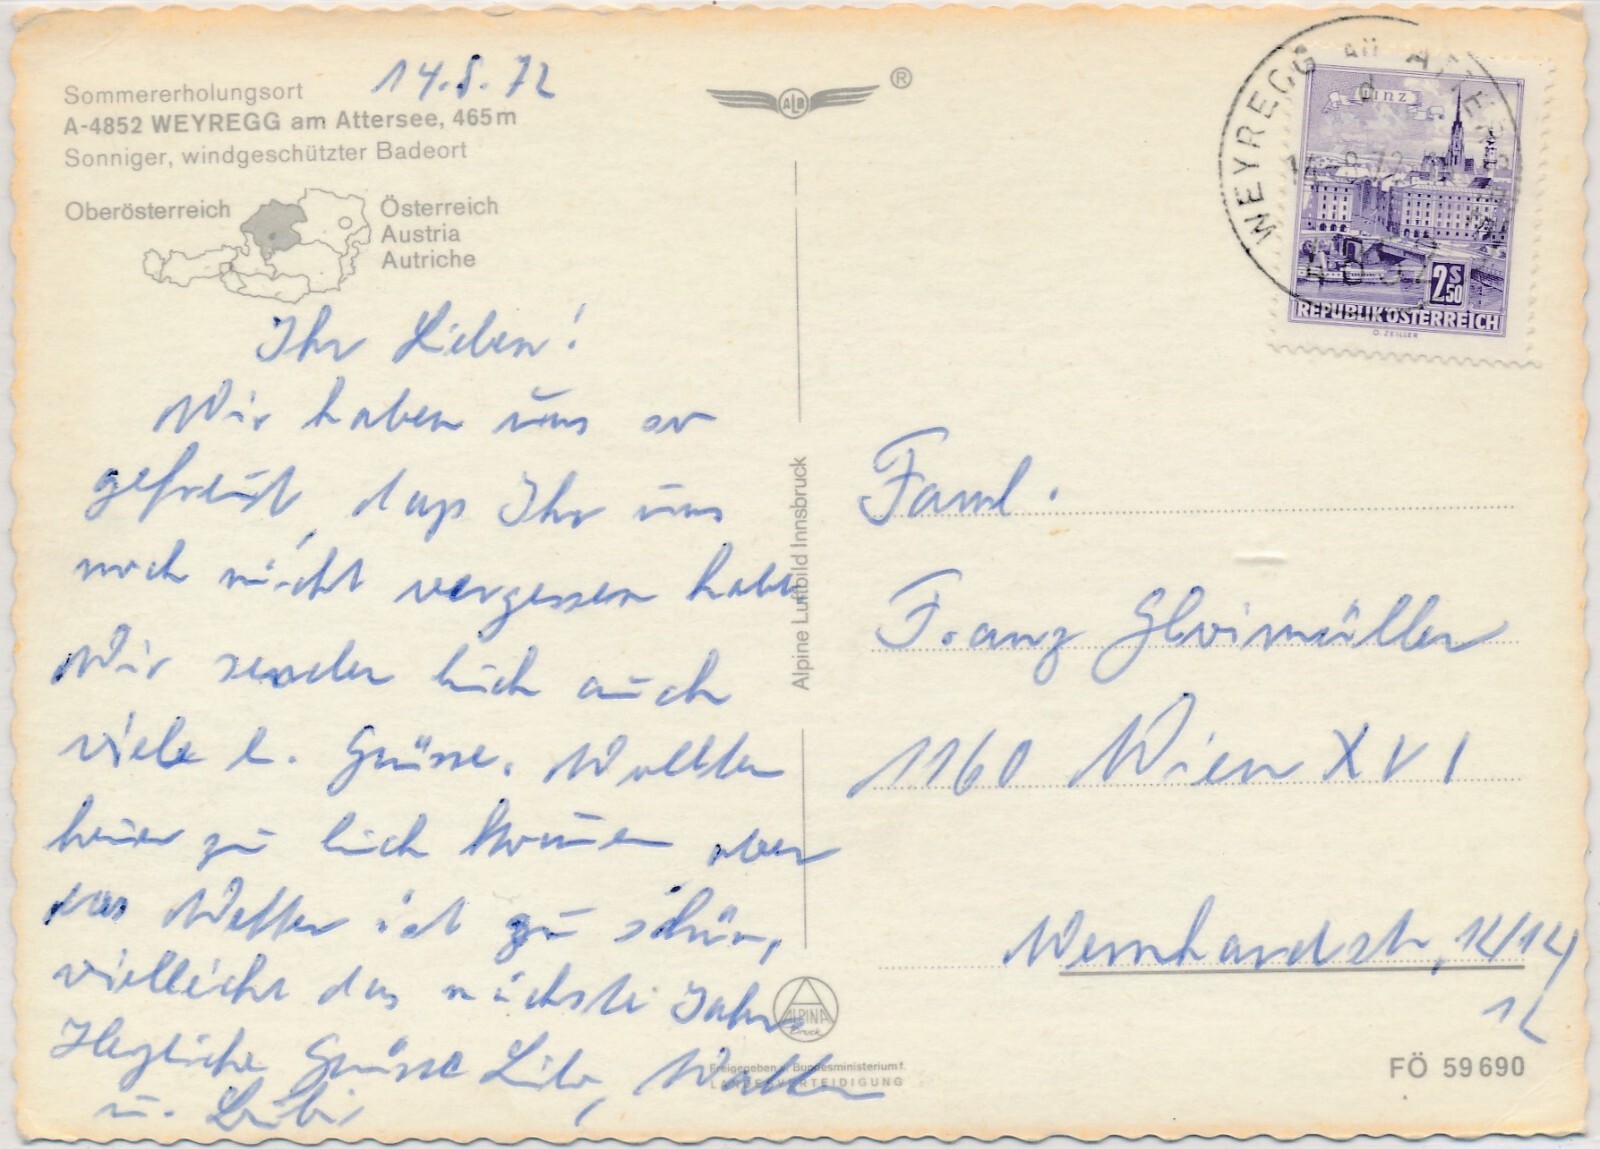 14.8.72
Sommererholungsort
A-4852 WEYREGG am Attersee, 465m
Sonniger, windgeschützter Badeort
Oberösterreich
Österreich
Austria
Autriche
Ihr Lieben!
Wir haben uns so
gefreut, daß Ihr uns
noch nicht vergessen habt
Wir senden Euch auch
viele l. Grüsse. Wollten
heuer zu Euch kommen aber
das Wetter ist zu schön,
vielleicht das nächste Jahr
Herzliche Grüsse
u.
ALB
®
Alpine Luftbild Innsbruck
ALPINA
Druck
Freigegeben v. Bundesministerium f.
LANDESVERTEIDIGUNG
WEYREGG AM ATTERSEE
d
14.-8.72
4852
Linz
2S50
REPUBLIK ÖSTERREICH
O. ZEILLER
Faml.
Franz
1160 Wien XVI
Wernhardstr, 14/14/
12
FÖ 59690